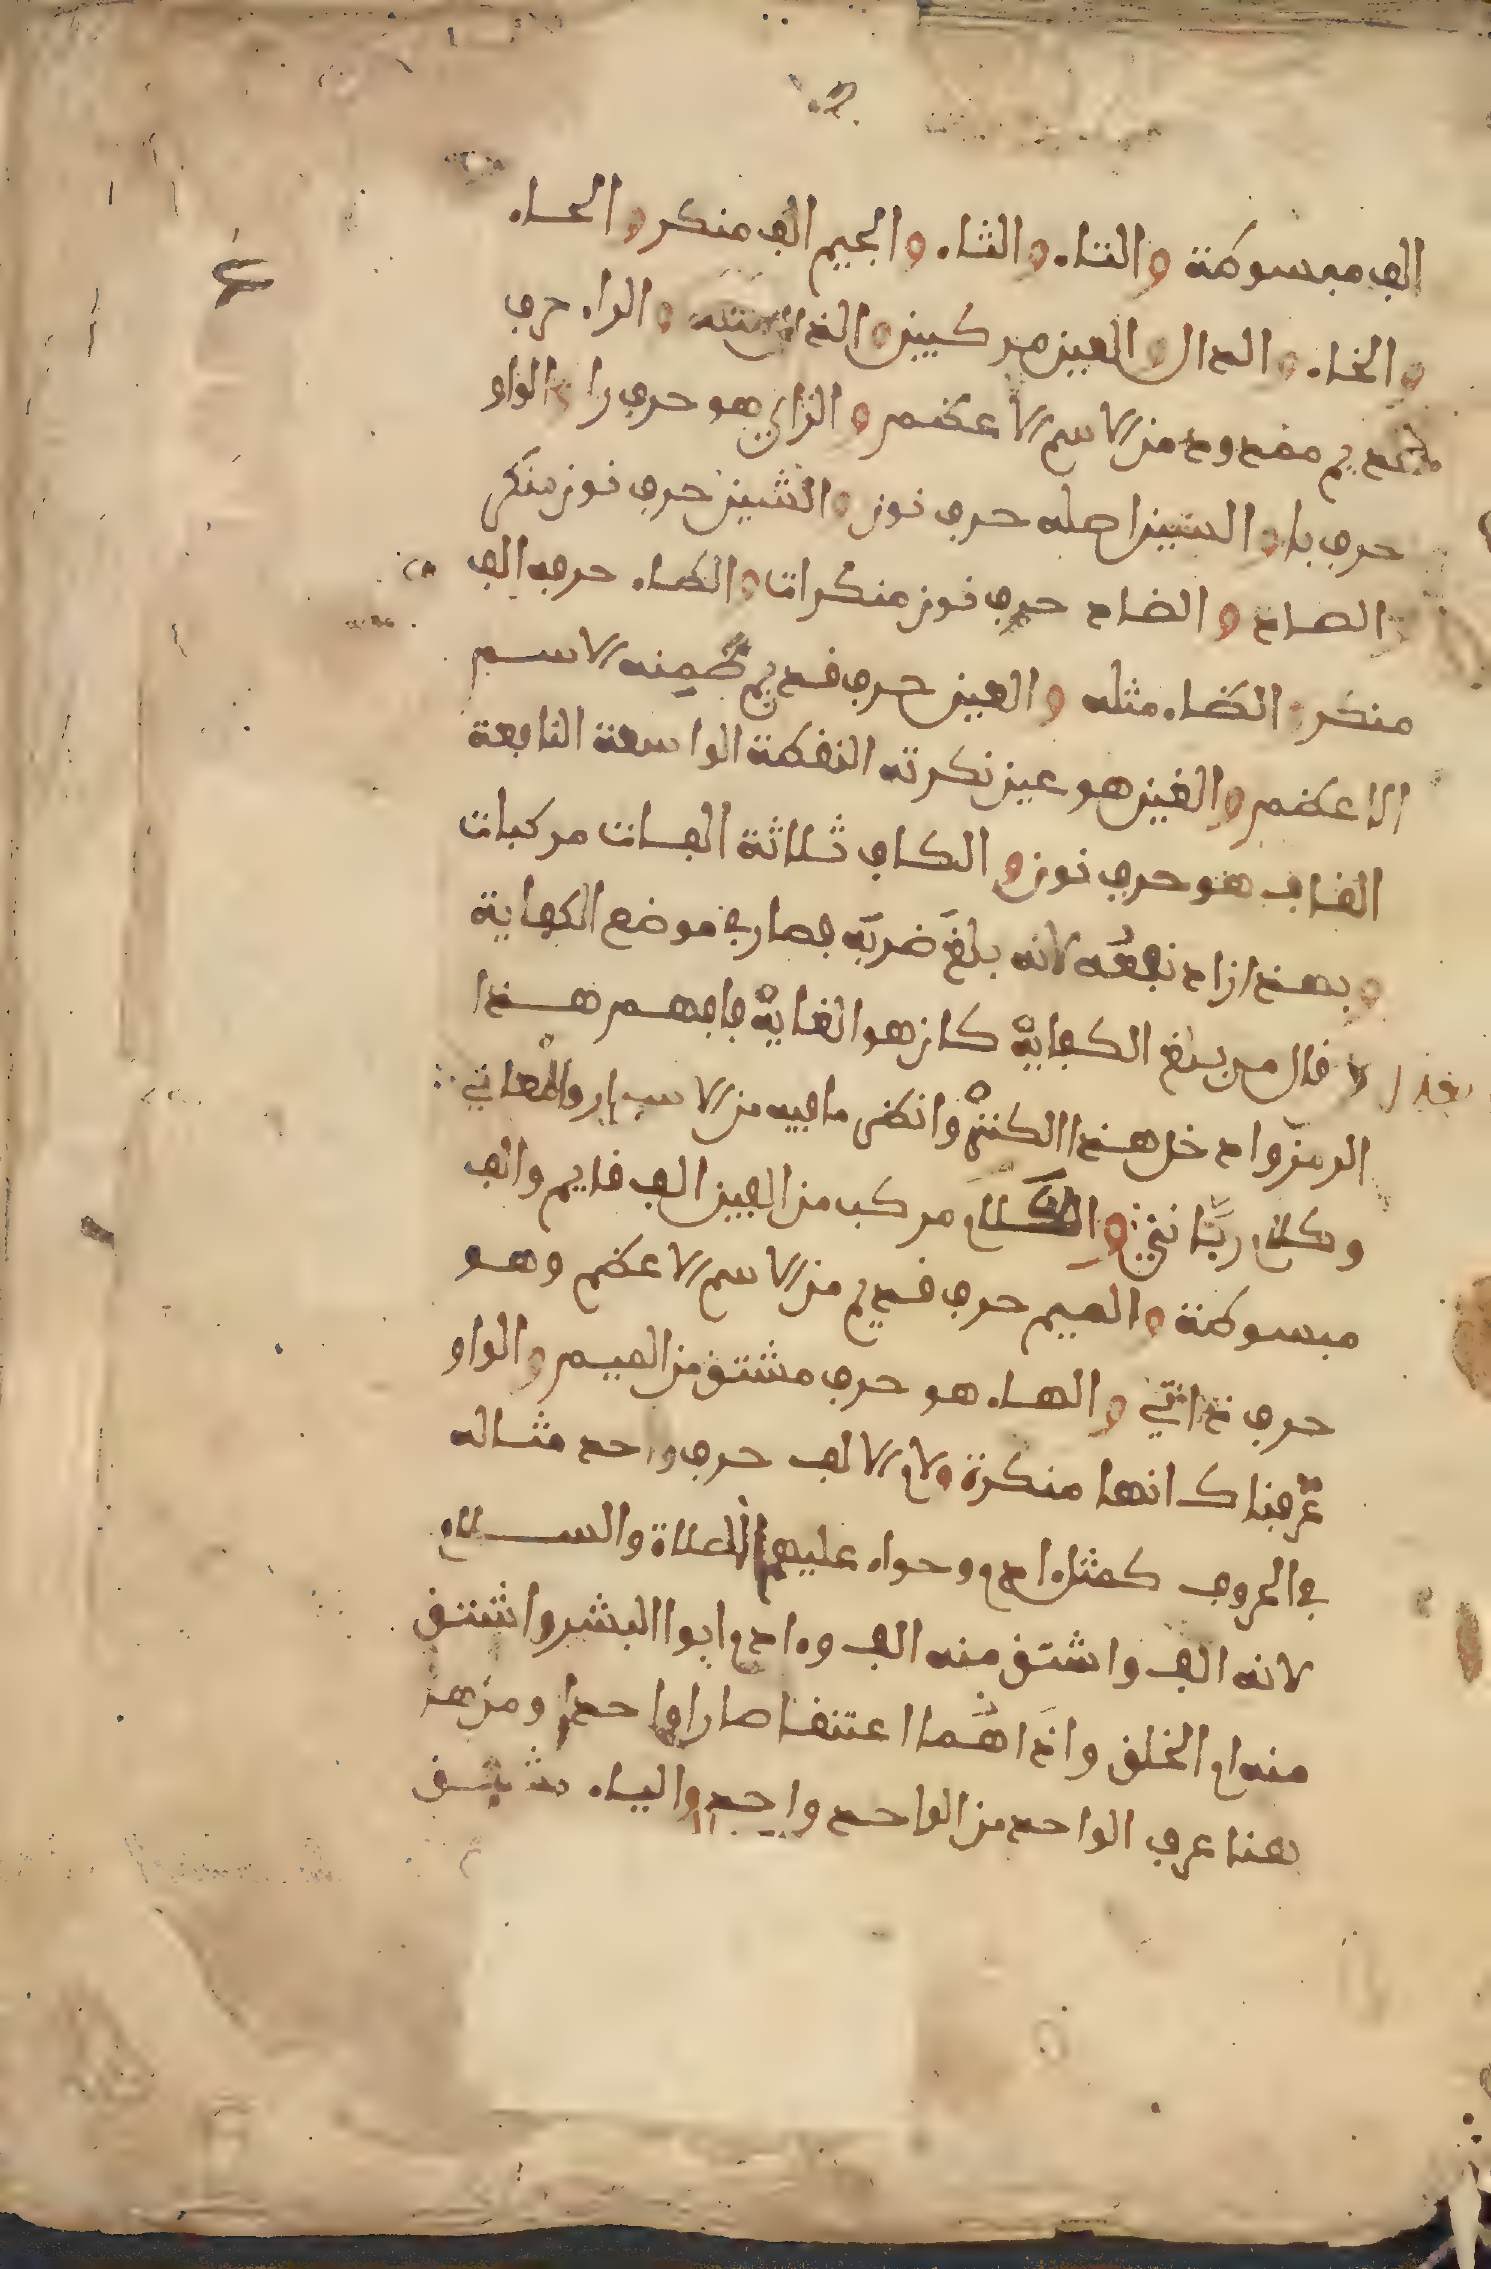 الف مبسوطة والتاء والثاء والجيم الف منكر والحاء
والخاء والدال الفين مركبين والذال مثله والراء حرف
قديم مفدود من الاسم الاعظم والزاي هو حرف را والواو
حرف با والسين اصله حرف نون والشين حرف نون منكر
الصاد والضاد حرف نون منكرات والطاء حرف الف
منكر والظاء مثله والعين حرف قديم منه الاسم
الاعظم والغين هو عين نكرته النقطة الواسعة النافعة
القاف هو حرف نون والكاف ثلاثة الفات مركبات
وبهذا زاد نفعه لانه بلغ ضربه فصار في موضع الكفاية
قال من بلغ الكفاية كان هو الغاية فافهم هذا
الرمز وادخل هذا الكنز وانظر ما فيه من الاسرار والمعاني
وكن ربانيّ واللام مركب من الفين الف قايم والف
مبسوطة والميم حرف قديم من الاسم الاعظم وهو
حرف ذاتي والهاء هو حرف مشتق من الميم والواو
عرفناك انها منكرة ولام الالف حرف واحد مثاله
في الحروف كمثل ادم وحواء عليهما الصلاة والسلام
لانه الف واشتق منه الف وءادم ابوا البشر واشتق
منه ام الخلق واذا هما اعتنقا صارا واحدا ومن هذ
هنا عرف الواحد من الواحد واحد والياء شق